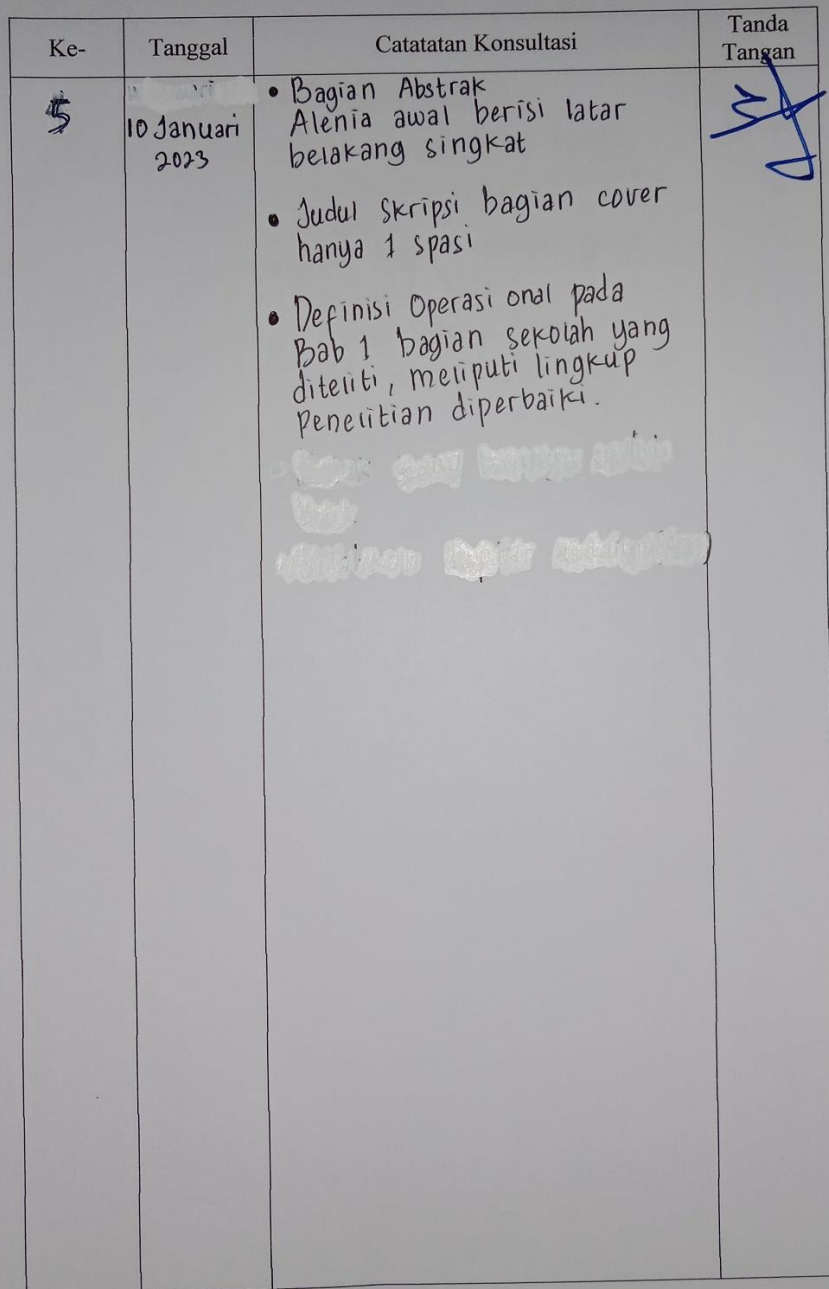 Ke-
Tanggal
Catatatan Konsultasi
Tanda
Tangan
5
10 Januari
2023
• Bagian Abstrak
Alenia awal berisi latar
belakang singkat
• Judul skripsi bagian cover
hanya 1 spasi
• Definisi Operasi onal pada
Bab 1 bagian sekolah yang
diteliti, meliputi lingkup
Penelitian diperbaiki.